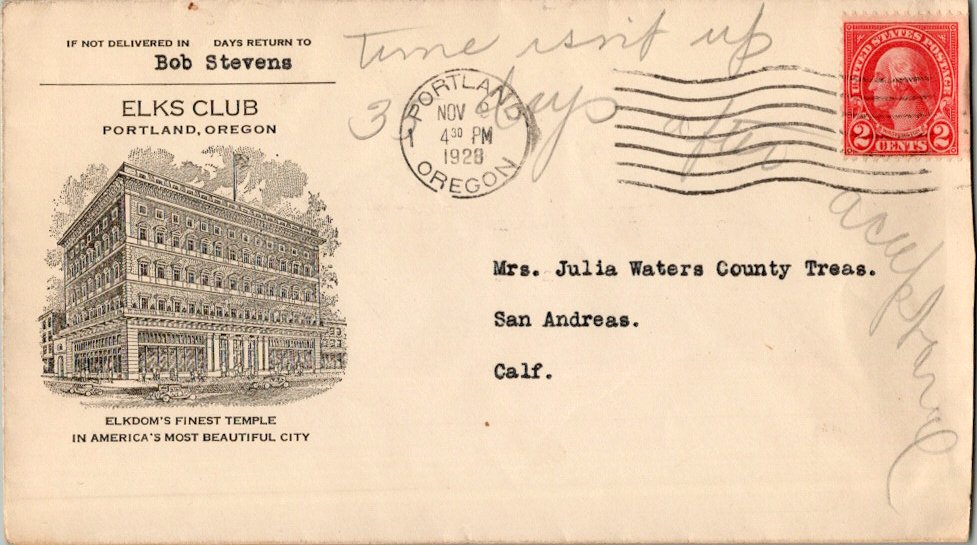 IF NOT DELIVERED IN DAYS RETURN TO
Bob Stevens
ELKS CLUB
PORTLAND, OREGON
ELKDOM'S FINEST TEMPLE
IN AMERICA'S MOST BEAUTIFUL CITY
time isn't up
3 days after
PORTLAND
NOV 2
4 30 PM
1928
OREGON
1
UNITED STATES POSTAGE
2 CENTS 2
Mrs. Julia Waters County Treas.
San Andreas.
Calf.